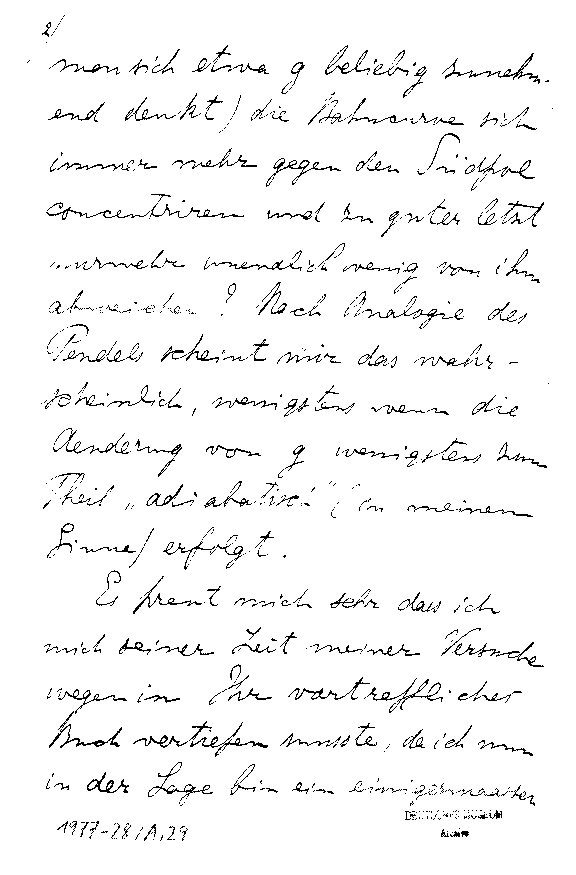 2/
man sich etwa g beliebig zunehm-
end denkt) die Bahncurve sich
immer mehr gegen den Südpol
concentriren und zu guter letzt
nurmehr unendlich wenig von ihm
abweichen? Nach Analogie des
Pendels scheint mir das wahr-
scheinlich, wenigstens wenn die
Aenderung von g wenigstens zum
Theil „adiabatisch" (in meinem
Sinne) erfolgt.
Es freut mich sehr dass ich
mich seiner Zeit meiner Versuche
wegen in Ihr vortreffliches
Buch vertiefen musste, da ich nun
in der Lage bin ein einigermaassen
1977-28/A,29
DEUTSCHES MUSEUM
Archiv